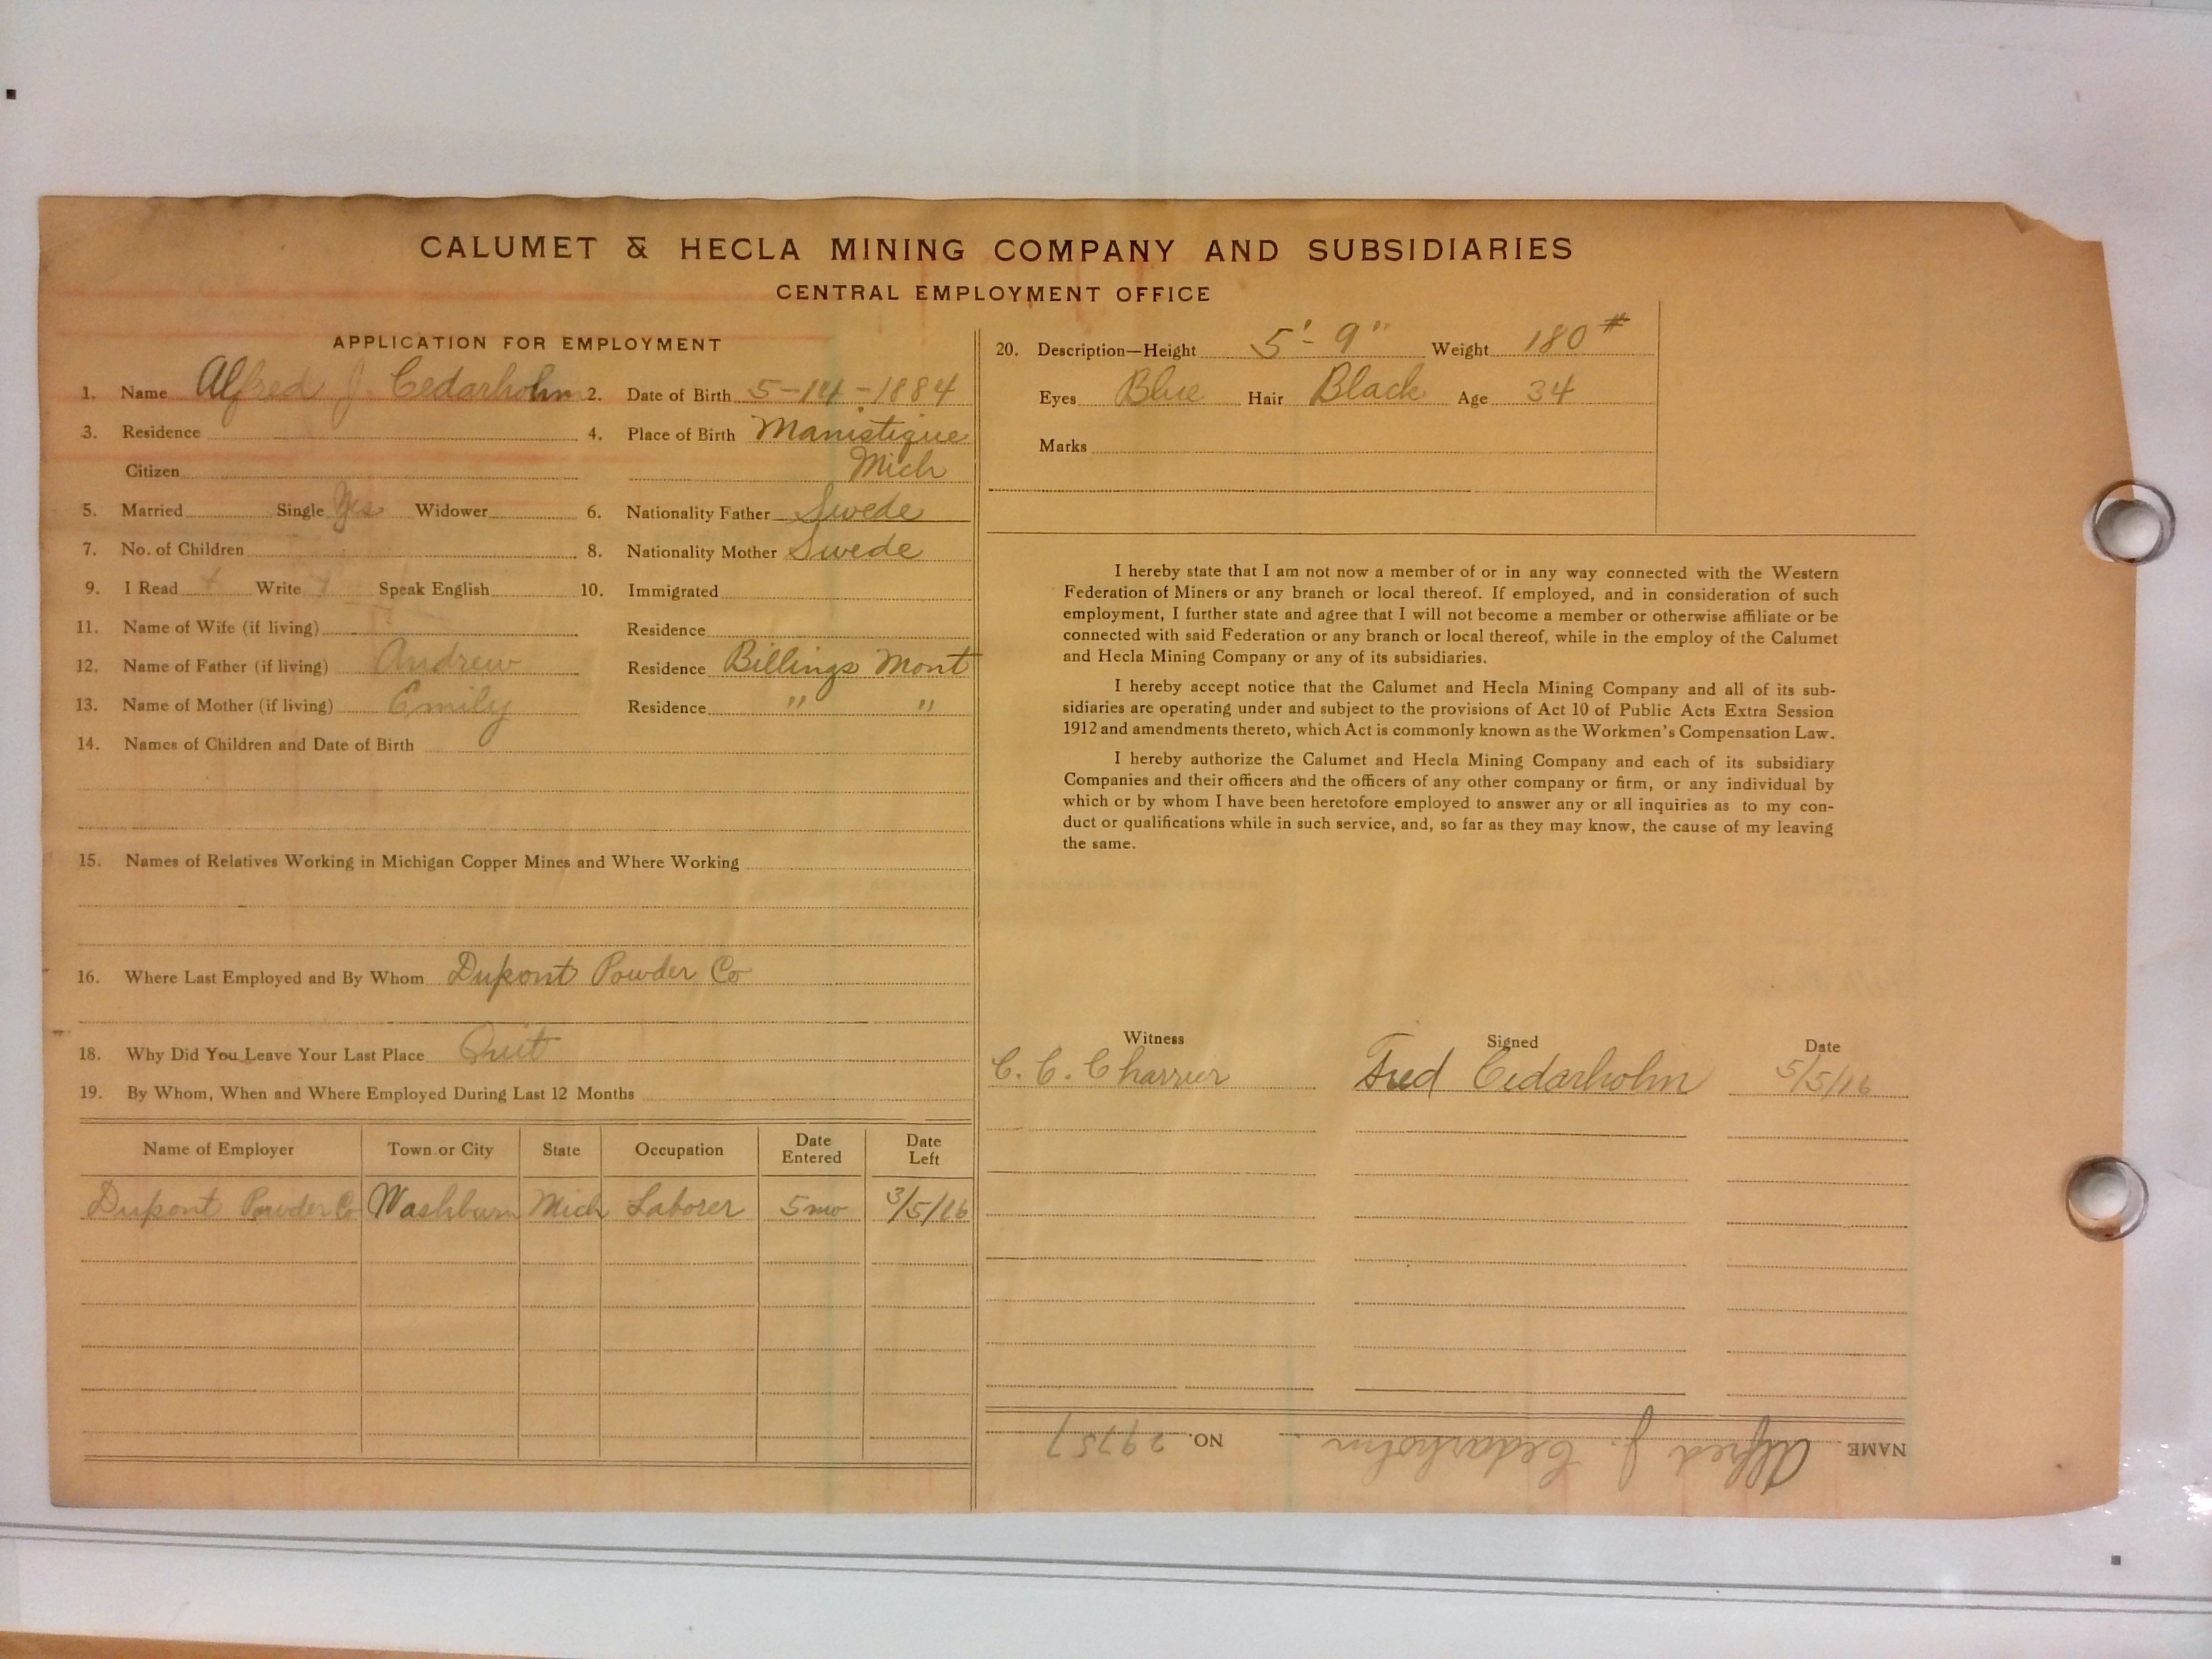 CALUMET & HECLA MINING COMPANY AND SUBSIDIARIES
CENTRAL EMPLOYMENT OFFICE
APPLICATION FOR EMPLOYMENT
1. Name Alfred J. Cedarholm 2. Date of Birth 5-14-1884
3. Residence 4. Place of Birth Manistique
Citizen Mich
5. Married Single Yes Widower 6. Nationality Father Swede
7. No. of Children 8. Nationality Mother Swede
9. I Read Write Speak English 10. Immigrated
11. Name of Wife (if living) Residence
12. Name of Father (if living) Andrew Residence Billings Mont
13. Name of Mother (if living) Emily Residence " "
14. Names of Children and Date of Birth
15. Names of Relatives Working in Michigan Copper Mines and Where Working
16. Where Last Employed and By Whom Dupont Powder Co
18. Why Did You Leave Your Last Place Quit
19. By Whom, When and Where Employed During Last 12 Months
Name of Employer Town or City State Occupation Date Entered Date Left
Dupont Powder Co Washburn Mich Laborer 5 mo 3/5/16
20. Description—Height 5' - 9" Weight 180 #
Eyes Blue Hair Black Age 34
Marks
I hereby state that I am not now a member of or in any way connected with the Western
Federation of Miners or any branch or local thereof. If employed, and in consideration of such
employment, I further state and agree that I will not become a member or otherwise affiliate or be
connected with said Federation or any branch or local thereof, while in the employ of the Calumet
and Hecla Mining Company or any of its subsidiaries.
I hereby accept notice that the Calumet and Hecla Mining Company and all of its sub-
sidiaries are operating under and subject to the provisions of Act 10 of Public Acts Extra Session
1912 and amendments thereto, which Act is commonly known as the Workmen's Compensation Law.
I hereby authorize the Calumet and Hecla Mining Company and each of its subsidiary
Companies and their officers and the officers of any other company or firm, or any individual by
which or by whom I have been heretofore employed to answer any or all inquiries as to my con-
duct or qualifications while in such service, and, so far as they may know, the cause of my leaving
the same.
Witness Signed Date
C. C. Charrier Fred Cedarholm 5/5/16
NAME Alfred J. Cedarholm NO. 29757